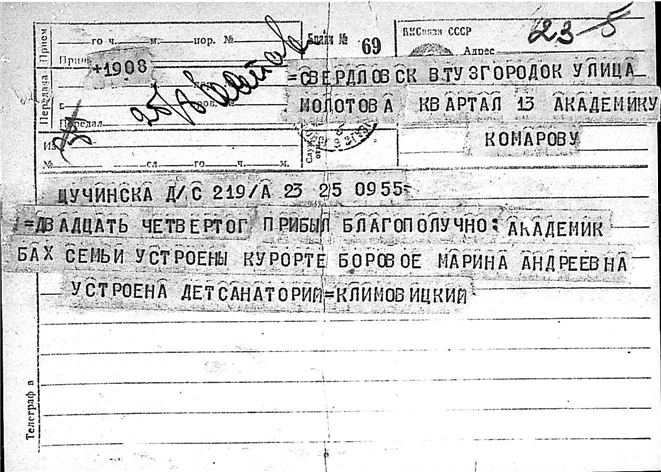 го ч. м. пор. №
Бланк № 69
НКСвязи СССР
23-5
Прием
Адрес
+1908
=СВЕРДЛОВСК ВТУЗГОРОДОК УЛИЦА
МОЛОТОВА КВАРТАЛ 13 АКАДЕМИКУ
КОМАРОВУ
Передача
Передал
Из
№ сл. го ч. м.
ЩУЧИНСКА Д/С 219/А 23 25 0955=
=ДВАДЦАТЬ ЧЕТВЕРТОГ ПРИБЫЛ БЛАГОПОЛУЧНО: АКАДЕМИК
БАХ СЕМЬИ УСТРОЕНЫ КУРОРТЕ БОРОВОЕ МАРИНА АНДРЕЕВНА
УСТРОЕНА ДЕТСАНАТОРИЙ=КЛИМОВИЦКИЙ
Телеграф в